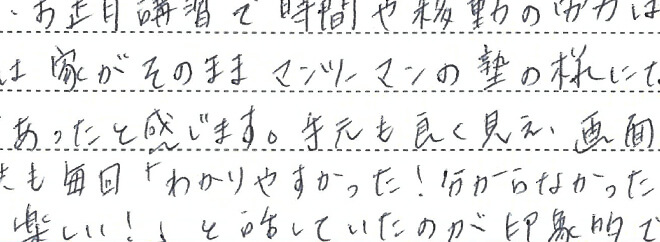 ・お正月講習で時間や移動の労力は
は家がそのままマンツーマンの塾の様にな
あったと感じます。手元も良く見え、画面
も毎回「わかりやすかった！分からなかった
楽しい！」と話していたのが印象的で